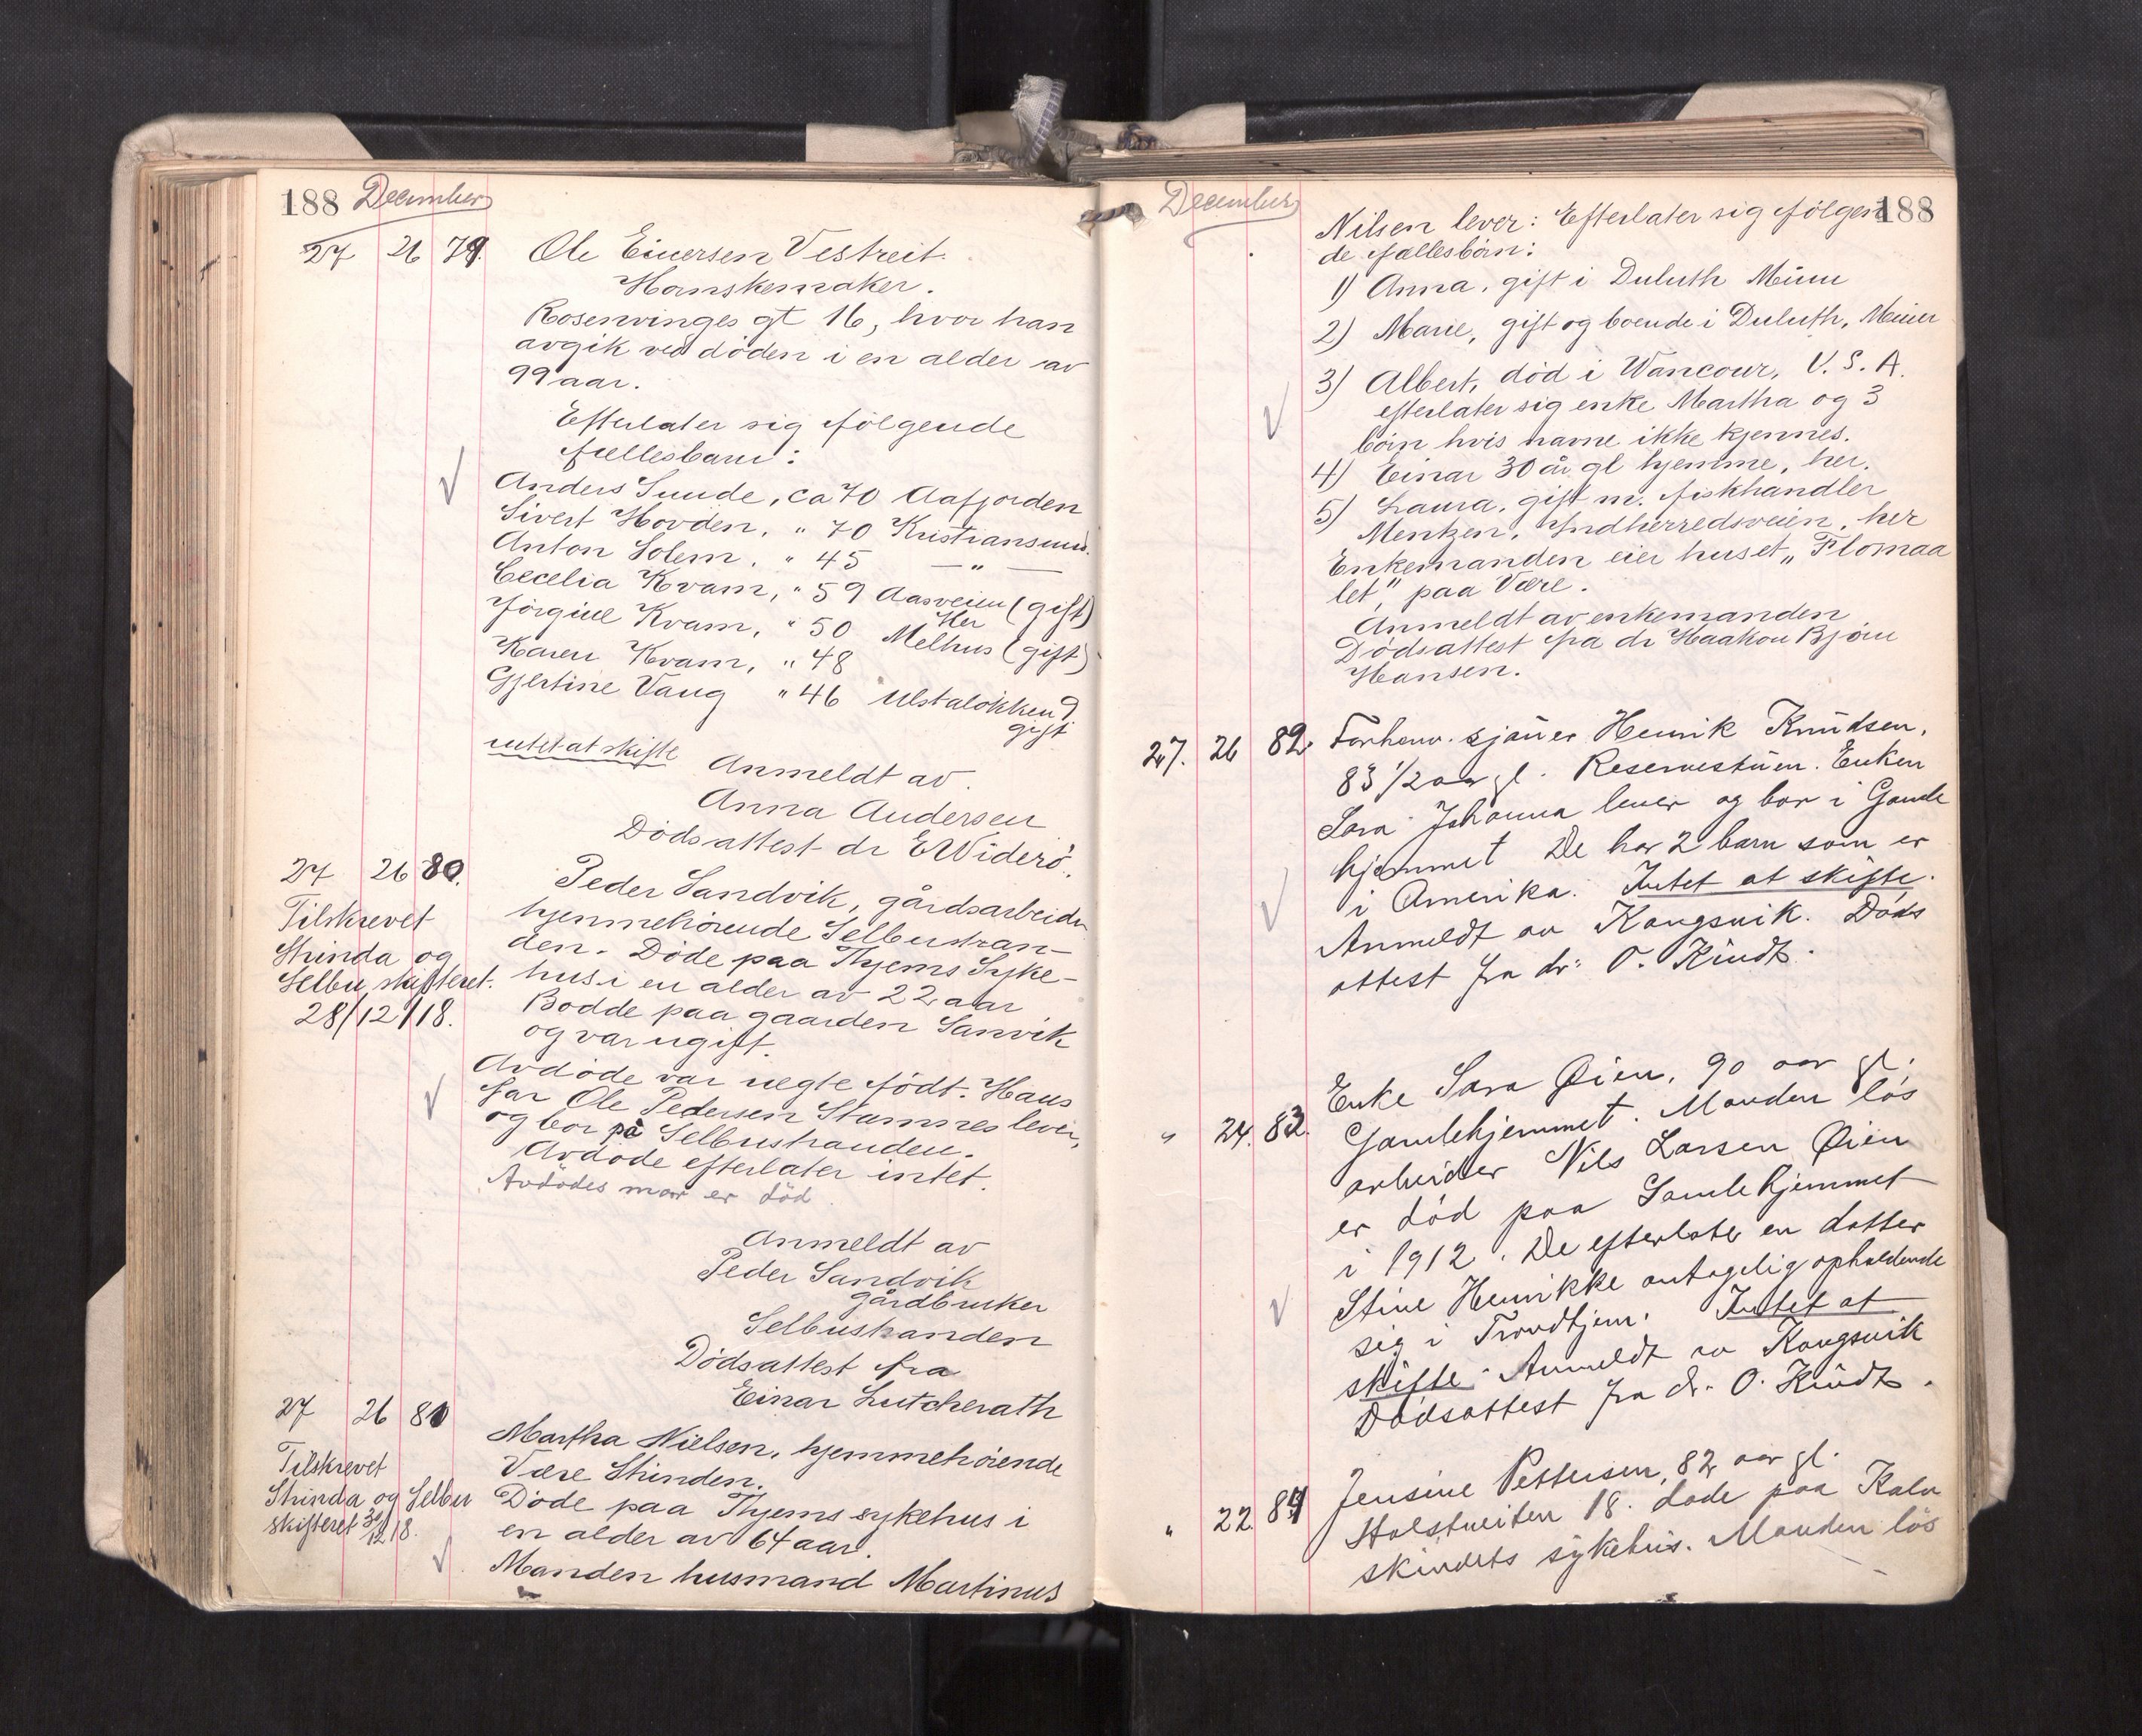 188 December
27 26 79. Ole Einersen Vestreit.
Hanskemaker.
Rosenvinges gt 16, hvor han
avgik ved döden i en alder av
99 aar.
Efterlater sig följgende
fællesbarn:
Anders Sunde, ca 70 Aafjorden
Sivert Hovden, " 70 Kristiansund.
Anton Solem, " 45 — " —
Cecelia Kvam, " 59 Aasveien (gift)
Her
Jörgine Kvam, " 50 Melhus (gift)
Karen Kvam, " 48
Gjertine Vaug " 46 Ulstalökken 9
gift
intet at skifte
Anmeldt av
Anna Andersen
Dödsattest dr E Widerö.
27 26 80. Peder Sandvik, gårdsarbeider
Tilskrevet
Strinda og
Selbu skifteret.
28/12/18.
hjemmehörende Selbustran-
den. Döde paa Thjems Syke-
hus i en alder av 22 aar
Bodde paa gaarden Sanvik
og var ugift.
Avdöde var uegte födt. Hans
far Ole Pedersen Stamnes lever,
og bor på Selbustranden.
Avdöde efterlater intet.
Avdödes mor er död.
Anmeldt av
Peder Sandvik
gårdbruker
Selbustranden
Dödsattest fra
Einar Lutcherath
27 26 81 Martha Nielsen, hjemmehörende
Tilskrevet
Strinda og Selbu
skifteret 30/12 18.
Være Strinden.
Döde paa Thjems sykehus i
en alder av 64 aar.
Manden husmand Martinus
December 188
Nilsen lever: Efterlater sig fölgen
de fællesbörn:
1) Anna, gift i Duluth Minn
2) Marie, gift og boende i Duluth, Minn
3) Albert, död i Wancour, U. S. A.
efterlater sig enke Martha og 3
börn hvis navne ikke kjennes.
4) Einar 30 år gl hjemme, her.
5) Laura, gift m. fiskhandler
Mentzen, Indherredsveien, her
Enkemanden eier huset „Flomaa
let," paa Være.
Anmeldt av enkemanden
Dödsattest fra dr Haakon Björn
Hansen.
27. 26 82. Forhenv. sjauer Henrik Knudsen,
83 1/2 aar gl. Reservestuen. Enken
Sara Johanna lever og bor i Gamle
hjemmet De har 2 barn som er
i Amerika. Intet at skifte.
Anmeldt av Kongsvik. Döds
attest fra dr. O. Kindt.
" 24. 83. Enke Sara Øien, 90 aar gl.
Gamlehjemmet. Manden lös
arbeider Nils Larsen Øien
er död paa Gamlehjemmet
i 1912. De efterlater en datter
Stine Henrikke antagelig opholdende
sig i Trondhjem. Intet at
skifte. Anmeldt av Kongsvik
Dödsattest fra dr. O. Kindt.
" 22. 84 Jensine Pettersen, 82 aar gl.
Holstveiten 18. döde paa Kalv
skindets sykehus. Manden lös